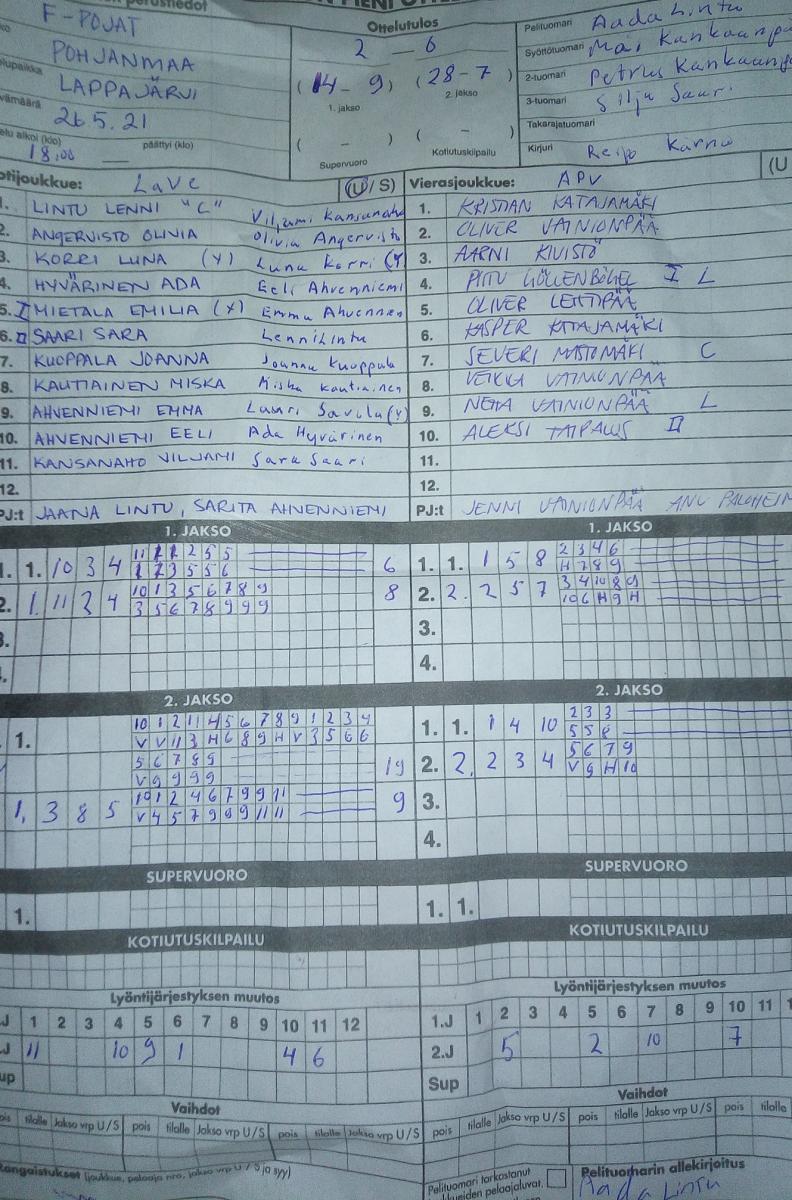 F-POJAT
POHJANMAA
LAPPAJÄRVI
26.5.21
alkoi (klo) päättyi (klo)
18.00
Ottelutulos
2 - 6
(14 - 9) (28 - 7)
1. jakso 2. jakso
( - ) ( - )
Supervuoro Kotiutuskilpailu
Pelituomari Aada Lintu
Syöttötuomari Mai
2-tuomari Petrus
3-tuomari Silja Saari
Takarajatuomari
Kirjuri Reijo Kärnä
LaVe (U/S)
1. LINTU LENNI "C" Viljami Kansanaho
2. ANGERVISTO OLIVIA Olivia Angervisto
3. KORRI LUNA (Y) Luna Korri (Y
4. HYVÄRINEN ADA Eeli Ahvenniemi
5. I MIETALA EMILIA (Y) Emma
6. II SAARI SARA Lenni Lintu
7. KUOPPALA JOANNA Joanna Kuoppala
8. KAUTIAINEN MISKA Miska Kautiainen
9. AHVENNIEMI EMMA Lauri Savela (Y)
10. AHVENNIEMI EELI Ada Hyvärinen
11. KANSANAHO VILJAMI Sara Saari
12.
PJ:t JAANA LINTU, SARITA AHVENNIEMI
Vierasjoukkue: APV (U
1. KRISTIAN KATAJAMÄKI
2. OLIVER VAINIONPÄÄ
3. AARNI KIVISTÖ
4. I L
5. OLIVER LEHTIPÄÄ
6. KASPER KATAJAMÄKI
7. SEVERI C
8. VEIKKA VAINIONPÄÄ
9. VAINIONPÄÄ L
10. ALEKSI TAIPALUS II
11.
12.
PJ:t JENNI VAINIONPÄÄ ANU
1. JAKSO
1. 1. 10 3 4 6
2. 1. 11 2 4 10 1 3 5 6 7 8 9 8
3 5 6 7 8 9 9 9
1. JAKSO
1. 1. 1 5 8 2 3 4 6
H 7 8 9
2. 2. 2 5 7 3 4 10 8 9
10 6 H 9 H
3.
4.
2. JAKSO
1. 10 1 2 11 4 5 6 7 8 9 1 2 3 4
V V 11 3 H 6 8 9 H V 3 5 6 6
5 6 7 8 9 19
V 9 9 9 9
1. 3 8 5 10 1 2 4 6 7 9 9 11 9
V 4 5 7 9 9 9 11 11
2. JAKSO
1. 1. 1 4 10 2 3 3
5 5 8
2. 2. 2 3 4 5 6 7 9
V 9 H 10
3.
4.
SUPERVUORO
1.
SUPERVUORO
1. 1.
KOTIUTUSKILPAILU
KOTIUTUSKILPAILU
Lyöntijärjestyksen muutos
J 1 2 3 4 5 6 7 8 9 10 11 12
J 11 10 9 1 4 6
up
Lyöntijärjestyksen muutos
1.J 1 2 3 4 5 6 7 8 9 10 11 1
2.J 5 2 10 7
Sup
Vaihdot
pois tilalle Jakso vrp U/S pois tilalle Jakso vrp U/S pois tilalle Jakso vrp U/S
Vaihdot
pois tilalle Jakso vrp U/S pois tilalle Jakso vrp U/S pois tilalle
Rangaistukset (joukkue, pelaaja nro, jakso vrp U/S ja syy)
Pelituomari tarkastanut
pelaajaluvat.
Pelituomarin allekirjoitus
Aada Lintu